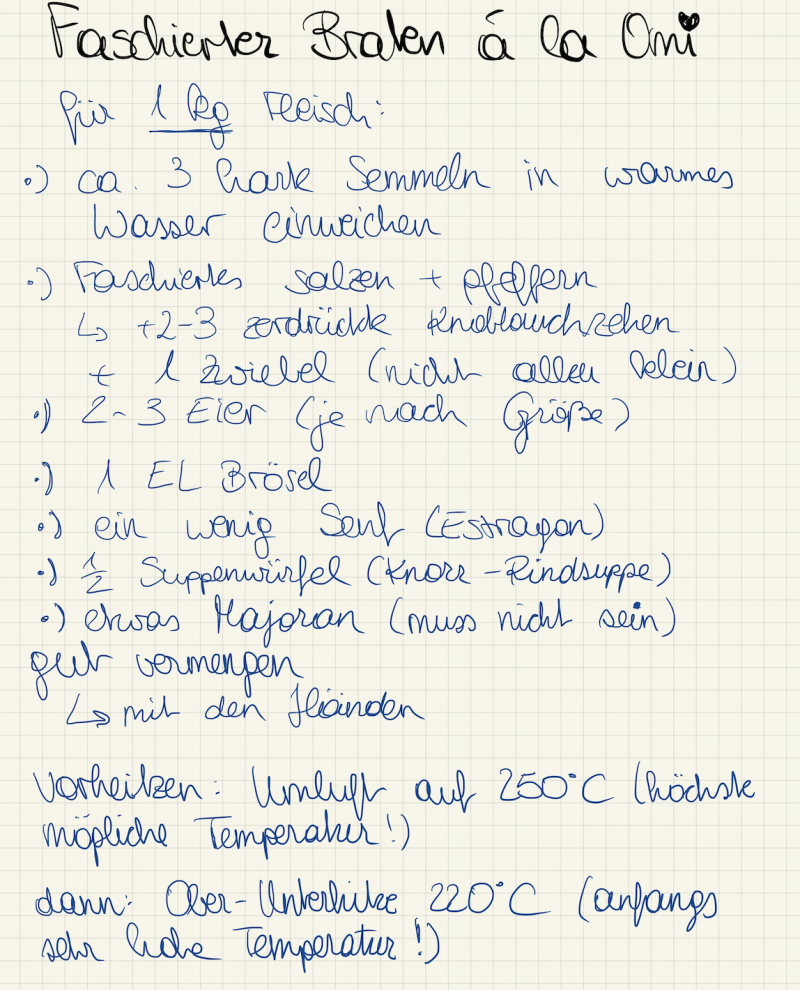 Faschierter Braten á la Omi
für 1 kg Fleisch:
•) ca. 3 harte Semmeln in warmes
Wasser einweichen
•) Faschiertes salzen + pfeffern
↳ +2-3 zerdrückte Knoblauchzehen
+ 1 Zwiebel (nicht allzu klein)
•) 2-3 Eier (je nach Größe)
•) 1 EL Brösel
•) ein wenig Senf (Estragon)
•) 1/2 Suppenwürfel (Knorr-Rindsuppe)
•) etwas Majoran (muss nicht sein)
gut vermengen
↳ mit den Händen
Vorheitzen: Umluft auf 250°C (höchste
mögliche Temperatur!)
dann: Ober-Unterhitze 220°C (anfangs
sehr hohe Temperatur!)